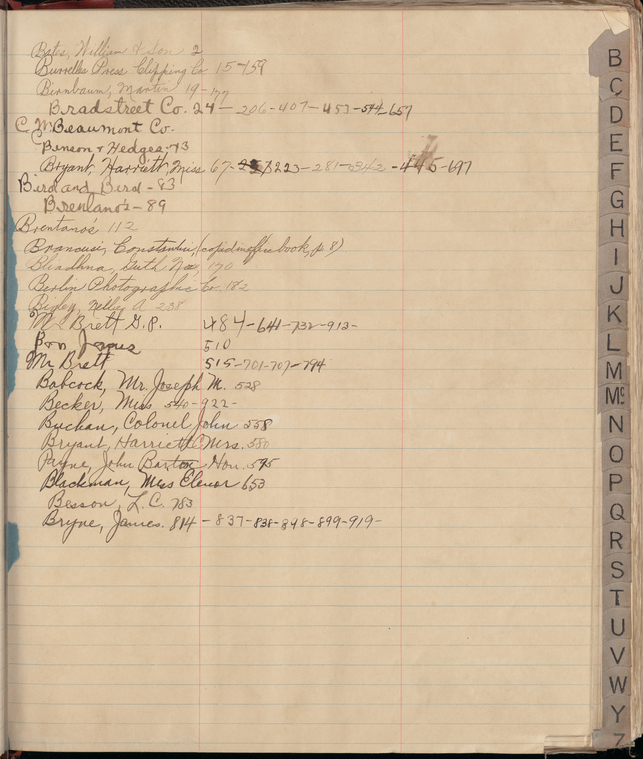 Bates, William & Son 2
Burrelles Press Clipping Co 15-159
Birnbaum, Martin 19-177
Bradstreet Co. 24-206-407-453-544-657
C. M. Beaumont Co.
Benson & Hedges-73
Bryant, Harriett, Miss 67-223-281-342-445-697
Bird and Bird-83
Brentano's-89
Brentano's 112
Brancusi, Constantin, (copied moffie book, p 8)
170
Berlin Photographic Co. 182
Bigley, Nellie A 238
Mr Brett G.P. 484-641-732-912-
Bon James 510
Mr Brett 515-701-707-794
Babcock, Mr. Joseph M. 528
Becker, Miss 540-922-
Buchan, Colonel John 558
Bryant, Harriett C Mrs. 580
Payne, John Barton Hon. 595
Blackman, Miss Elenor 653
Besson, L.C. 783
Bryne, James. 814-837-838-898-899-919-
B
C
D
E
F
G
H
I
J
K
L
M
Mc
N
O
P
Q
R
S
T
U
V
W
Y
Z